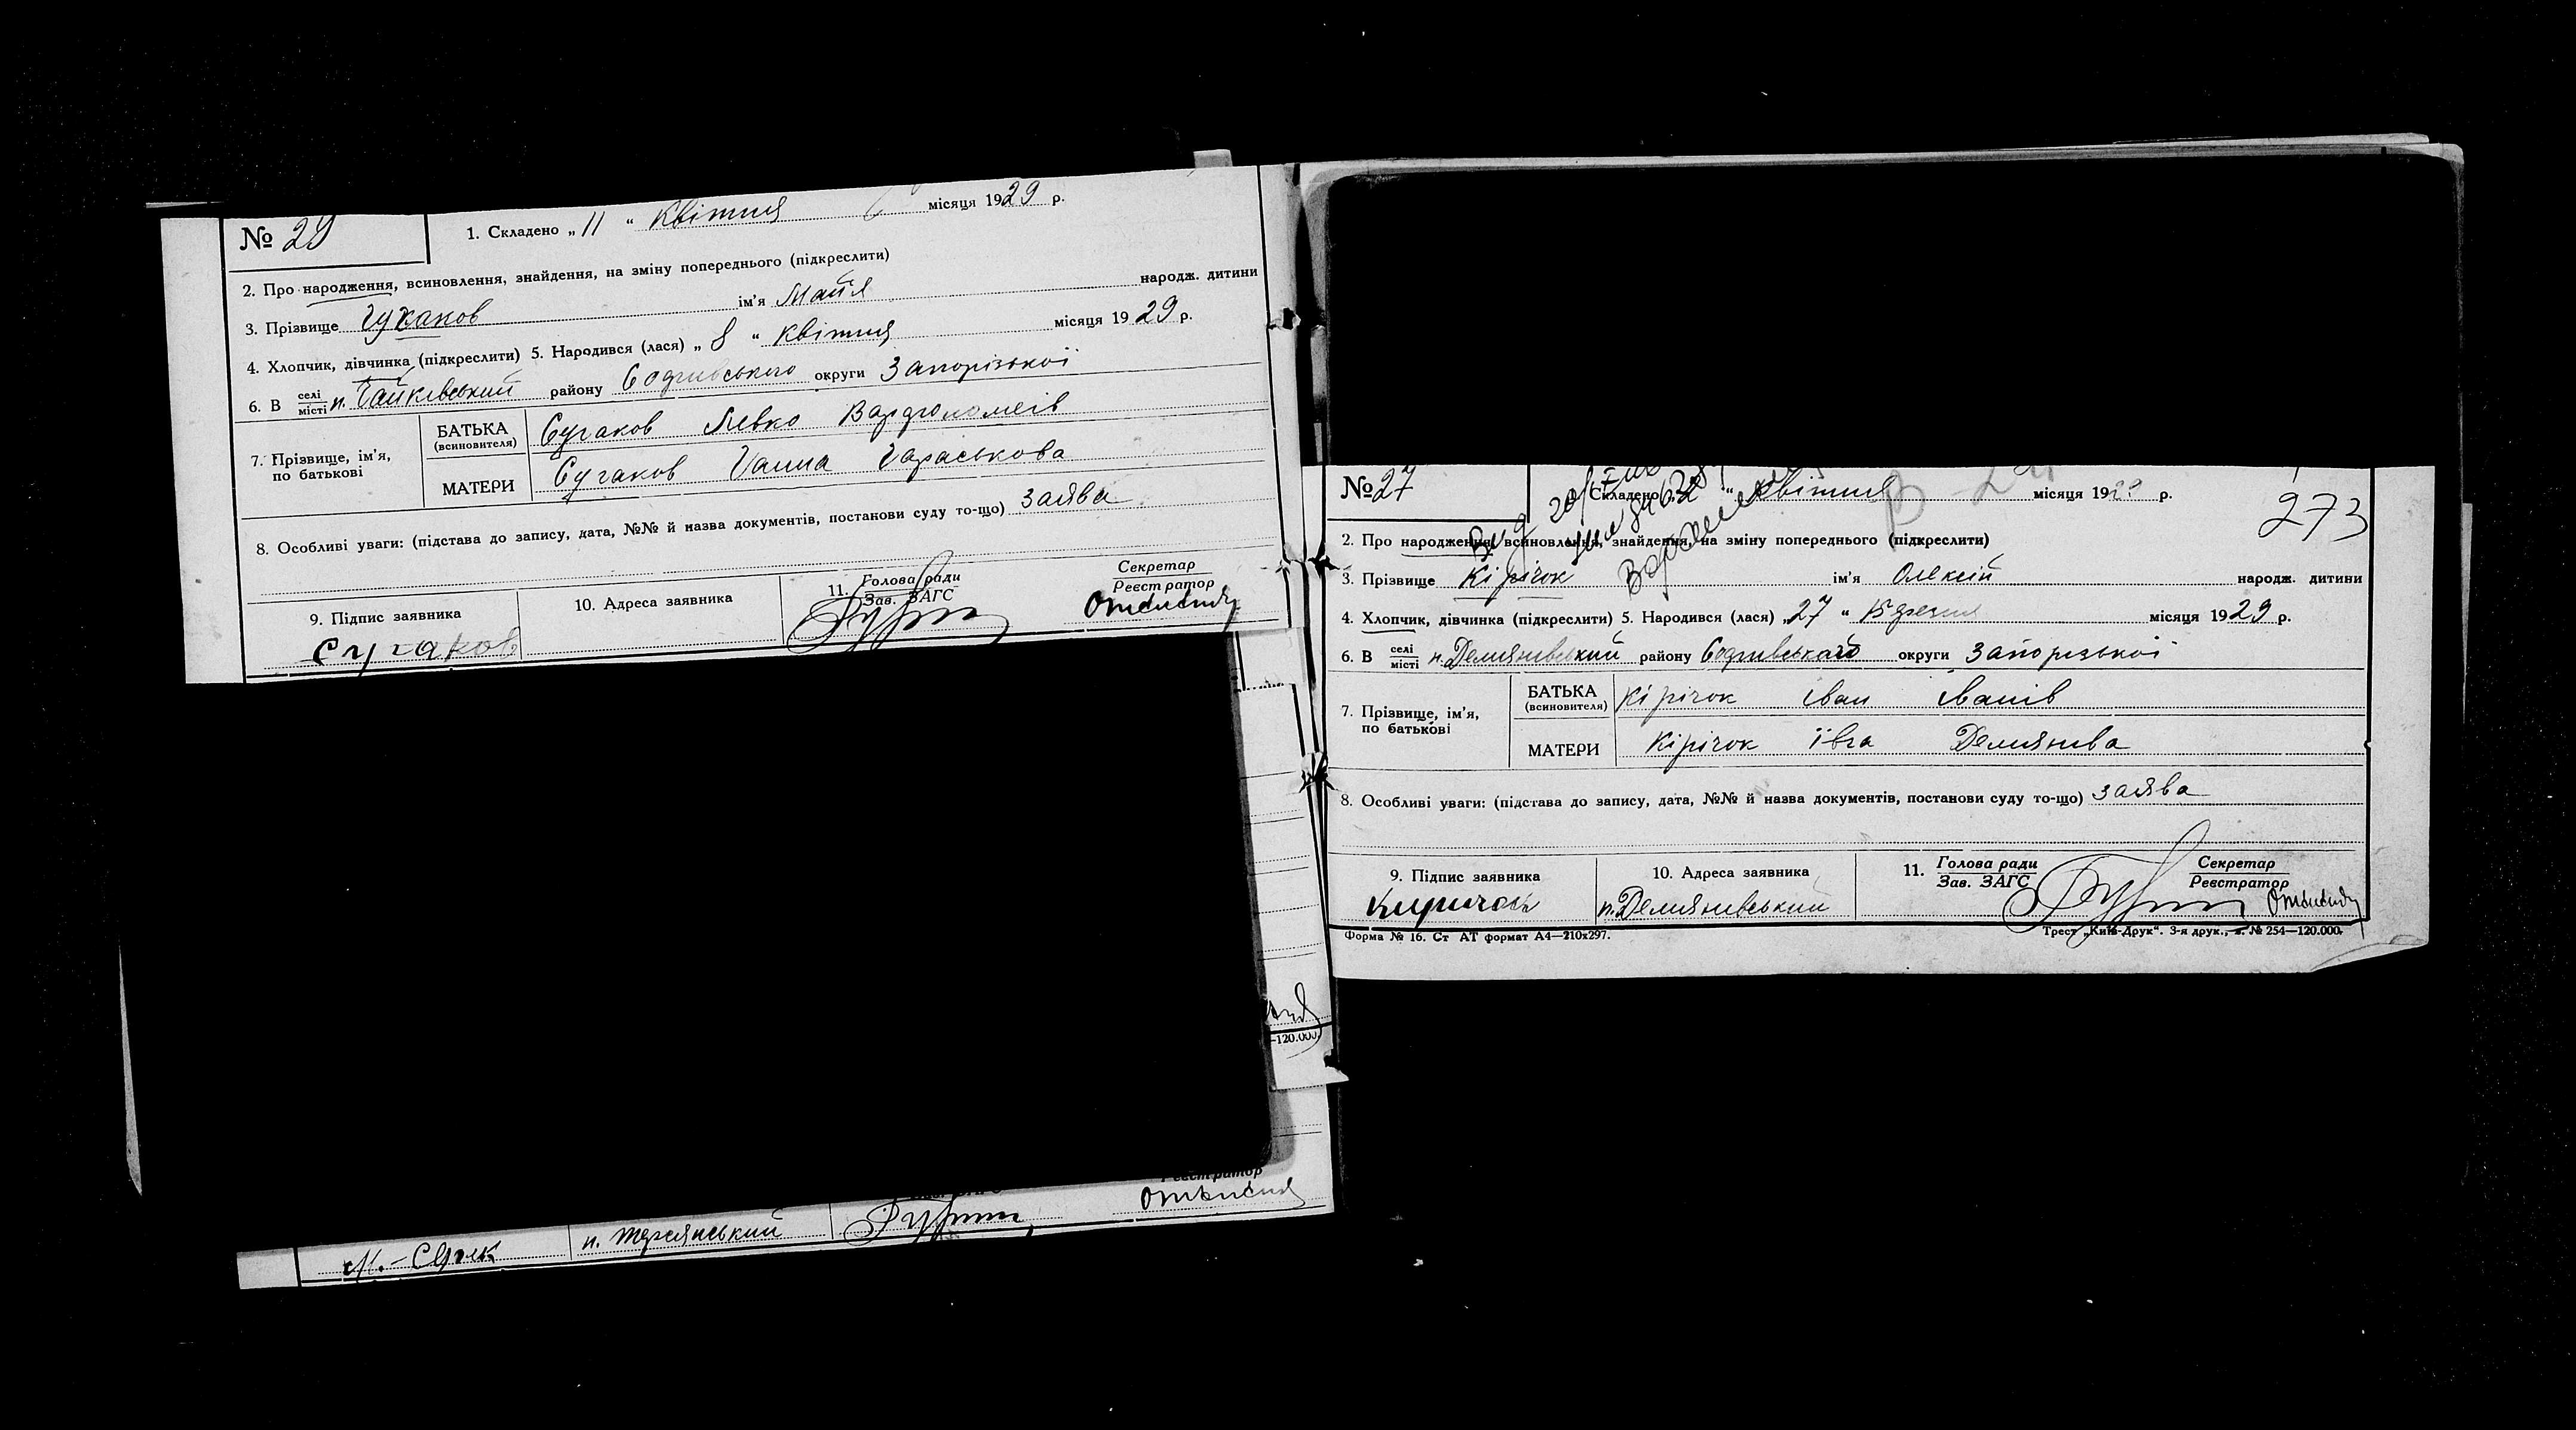 № 29
1. Складено „ 11 “ квітня місяця 1929 р.
2. Про народження, всиновлення, знайдення, на зміну попереднього (підкреслити)
3. Прізвище ім'я Майя народж. дитини
4. Хлопчик, дівчинка (підкреслити) 5. Народився (лася) „ 8 “ квітня місяця 1929 р.
6. В селі місті п. району округи Запорізької
7. Прізвище, ім'я, по батькові
БАТЬКА (всиновителя) Сугаков Левко
МАТЕРИ Сугаков Ганна Гараськова
8. Особливі уваги: (підстава до запису, дата, №№ й назва документів, постанови суду то-що) заява
9. Підпис заявника
10. Адреса заявника
11. Голова ради Зав. ЗАГС
Секретар Реєстратор
Сугаков
Реєстратор
-120.000.
№ 27
Складено „ 2 “ квітня місяця 1929 р.
273
2. Про народження, всиновлення, знайдення, на зміну попереднього (підкреслити)
3. Прізвище Кірічок ім'я Олексій народж. дитини
4. Хлопчик, дівчинка (підкреслити) 5. Народився (лася) „ 27 “ Березня місяця 1929 р.
6. В селі місті п. Демянивський району округи Запорізької
7. Прізвище, ім'я, по батькові
БАТЬКА (всиновителя) Кірічок Іван Іванів
МАТЕРИ Кірічок Івга Демянива
8. Особливі уваги: (підстава до запису, дата, №№ й назва документів, постанови суду то-що) заява
9. Підпис заявника
10. Адреса заявника
11. Голова ради Зав. ЗАГС
Секретар Реєстратор
Киричок
п. Демянивський
Форма № 16. Ст АТ формат А4—210x297.
Трест „Київ-Друк“. 3-я друк., з. № 254—120.000.